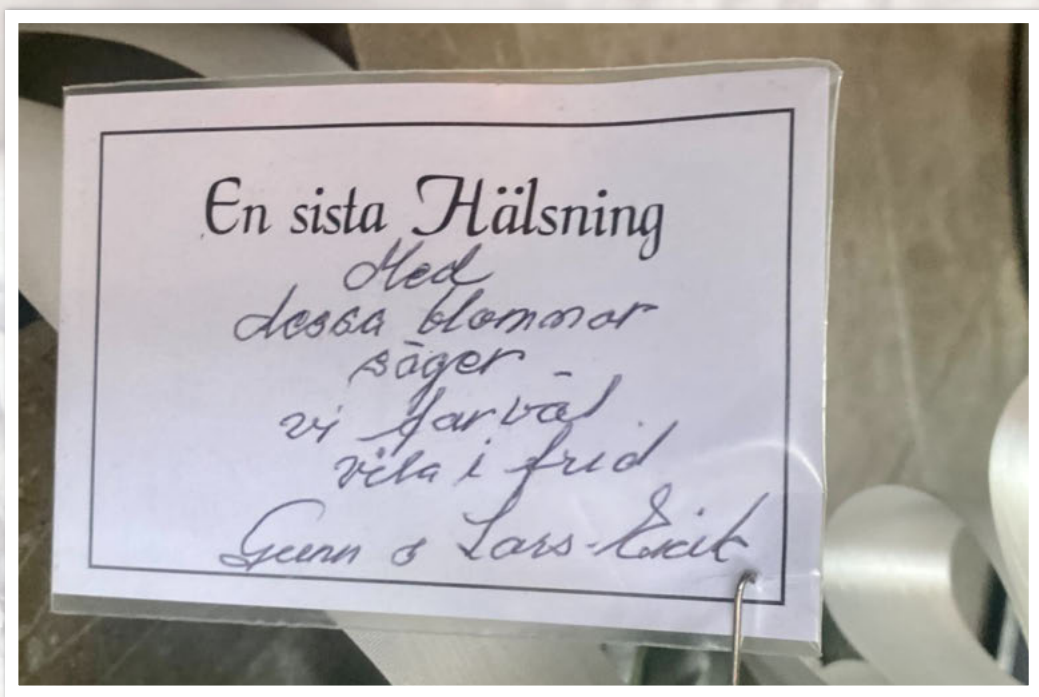 En sista Hälsning
Med
dessa blommor
säger
vi farväl
vila i frid
Gunn & Lars-Erik